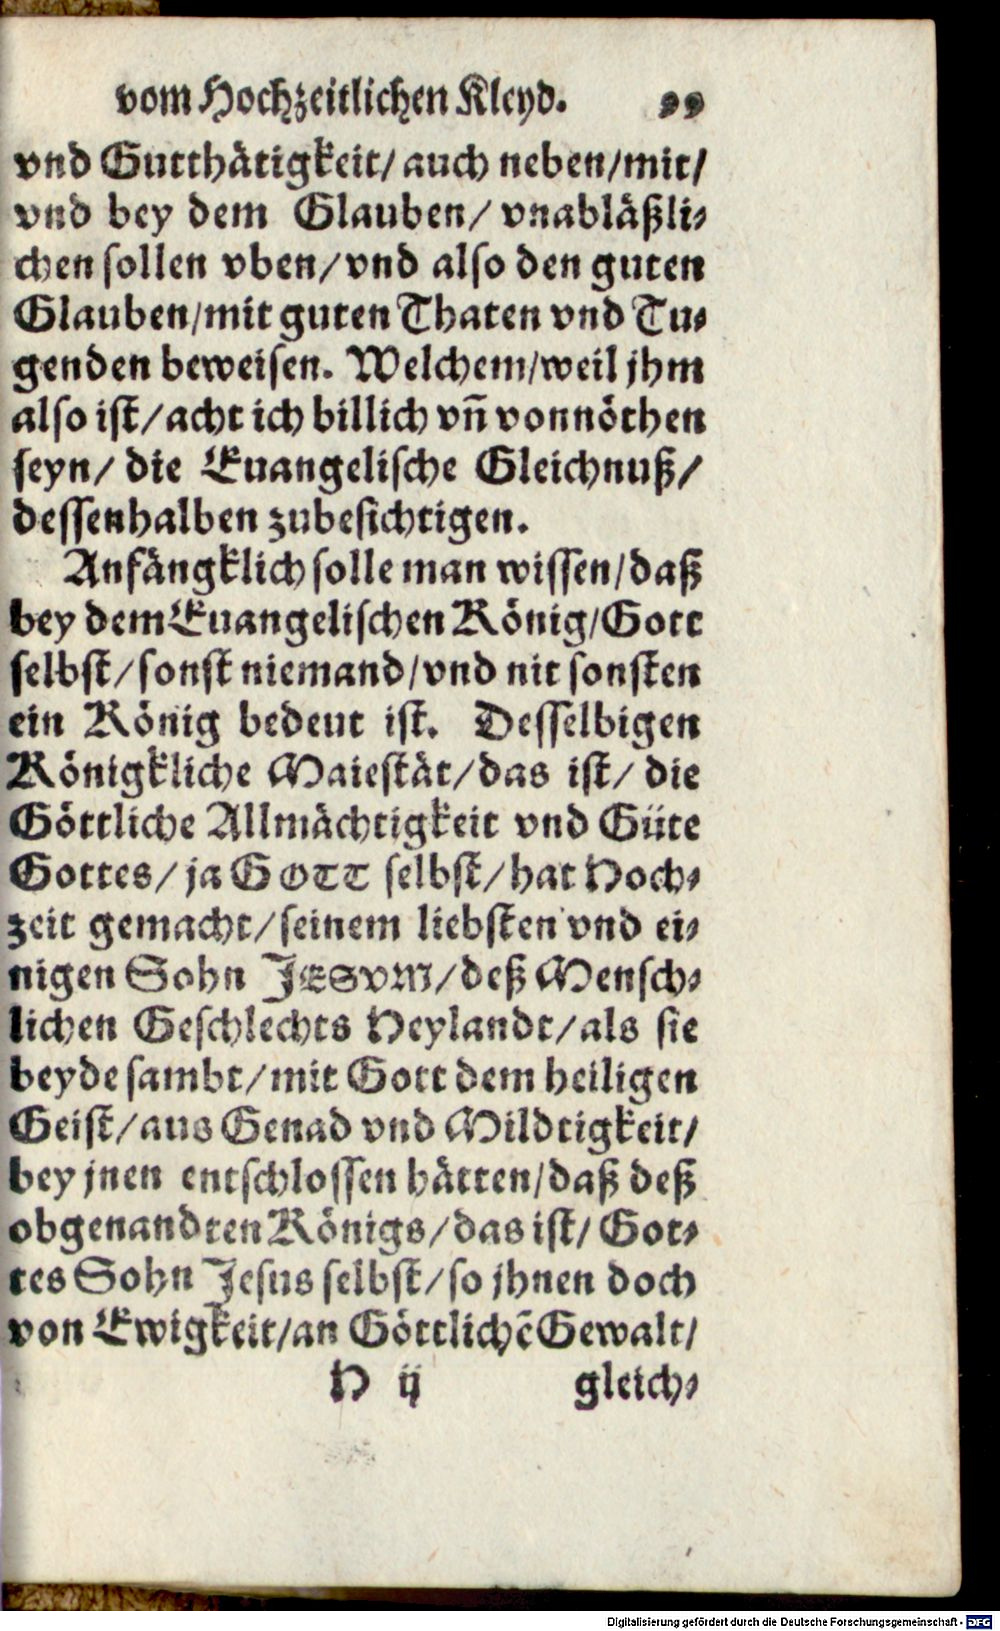 vom Hochzeitlichen Kleyd. 99
vnd Gutthätigkeit/ auch neben/mit/
vnd bey dem Glauben/ vnabläßli⸗
chen sollen vben/vnd also den guten
Glauben/mit guten Thaten vnd Tu⸗
genden beweisen. Welchem/weil jhm
also ist/acht ich billich vñ vonnöthen
seyn/ die Euangelische Gleichnuß/
dessenhalben zubesichtigen.
Anfängklich solle man wissen/daß
bey dem Euangelischen König/Gott
selbst/sonst niemand/vnd nit sonsten
ein König bedeut ist. Desselbigen
Königkliche Maiestät/das ist/ die
Göttliche Allmächtigkeit vnd Güte
Gottes/ja GOTT selbst/hat Hoch⸗
zeit gemacht/seinem liebsten vnd ei⸗
nigen Sohn JESVM/deß Mensch⸗
lichen Geschlechts Heylandt/als sie
beyde sambt/mit Gott dem heiligen
Geist/aus Genad vnd Mildtigkeit/
bey jnen entschlossen hätten/daß deß
obgenandten Königs/das ist/ Got⸗
tes Sohn Jesus selbst/so jhnen doch
von Ewigkeit/an Göttlichẽ Gewalt/
H ij gleich⸗
Digitalisierung gefördert durch die Deutsche Forschungsgemeinschaft - DFG